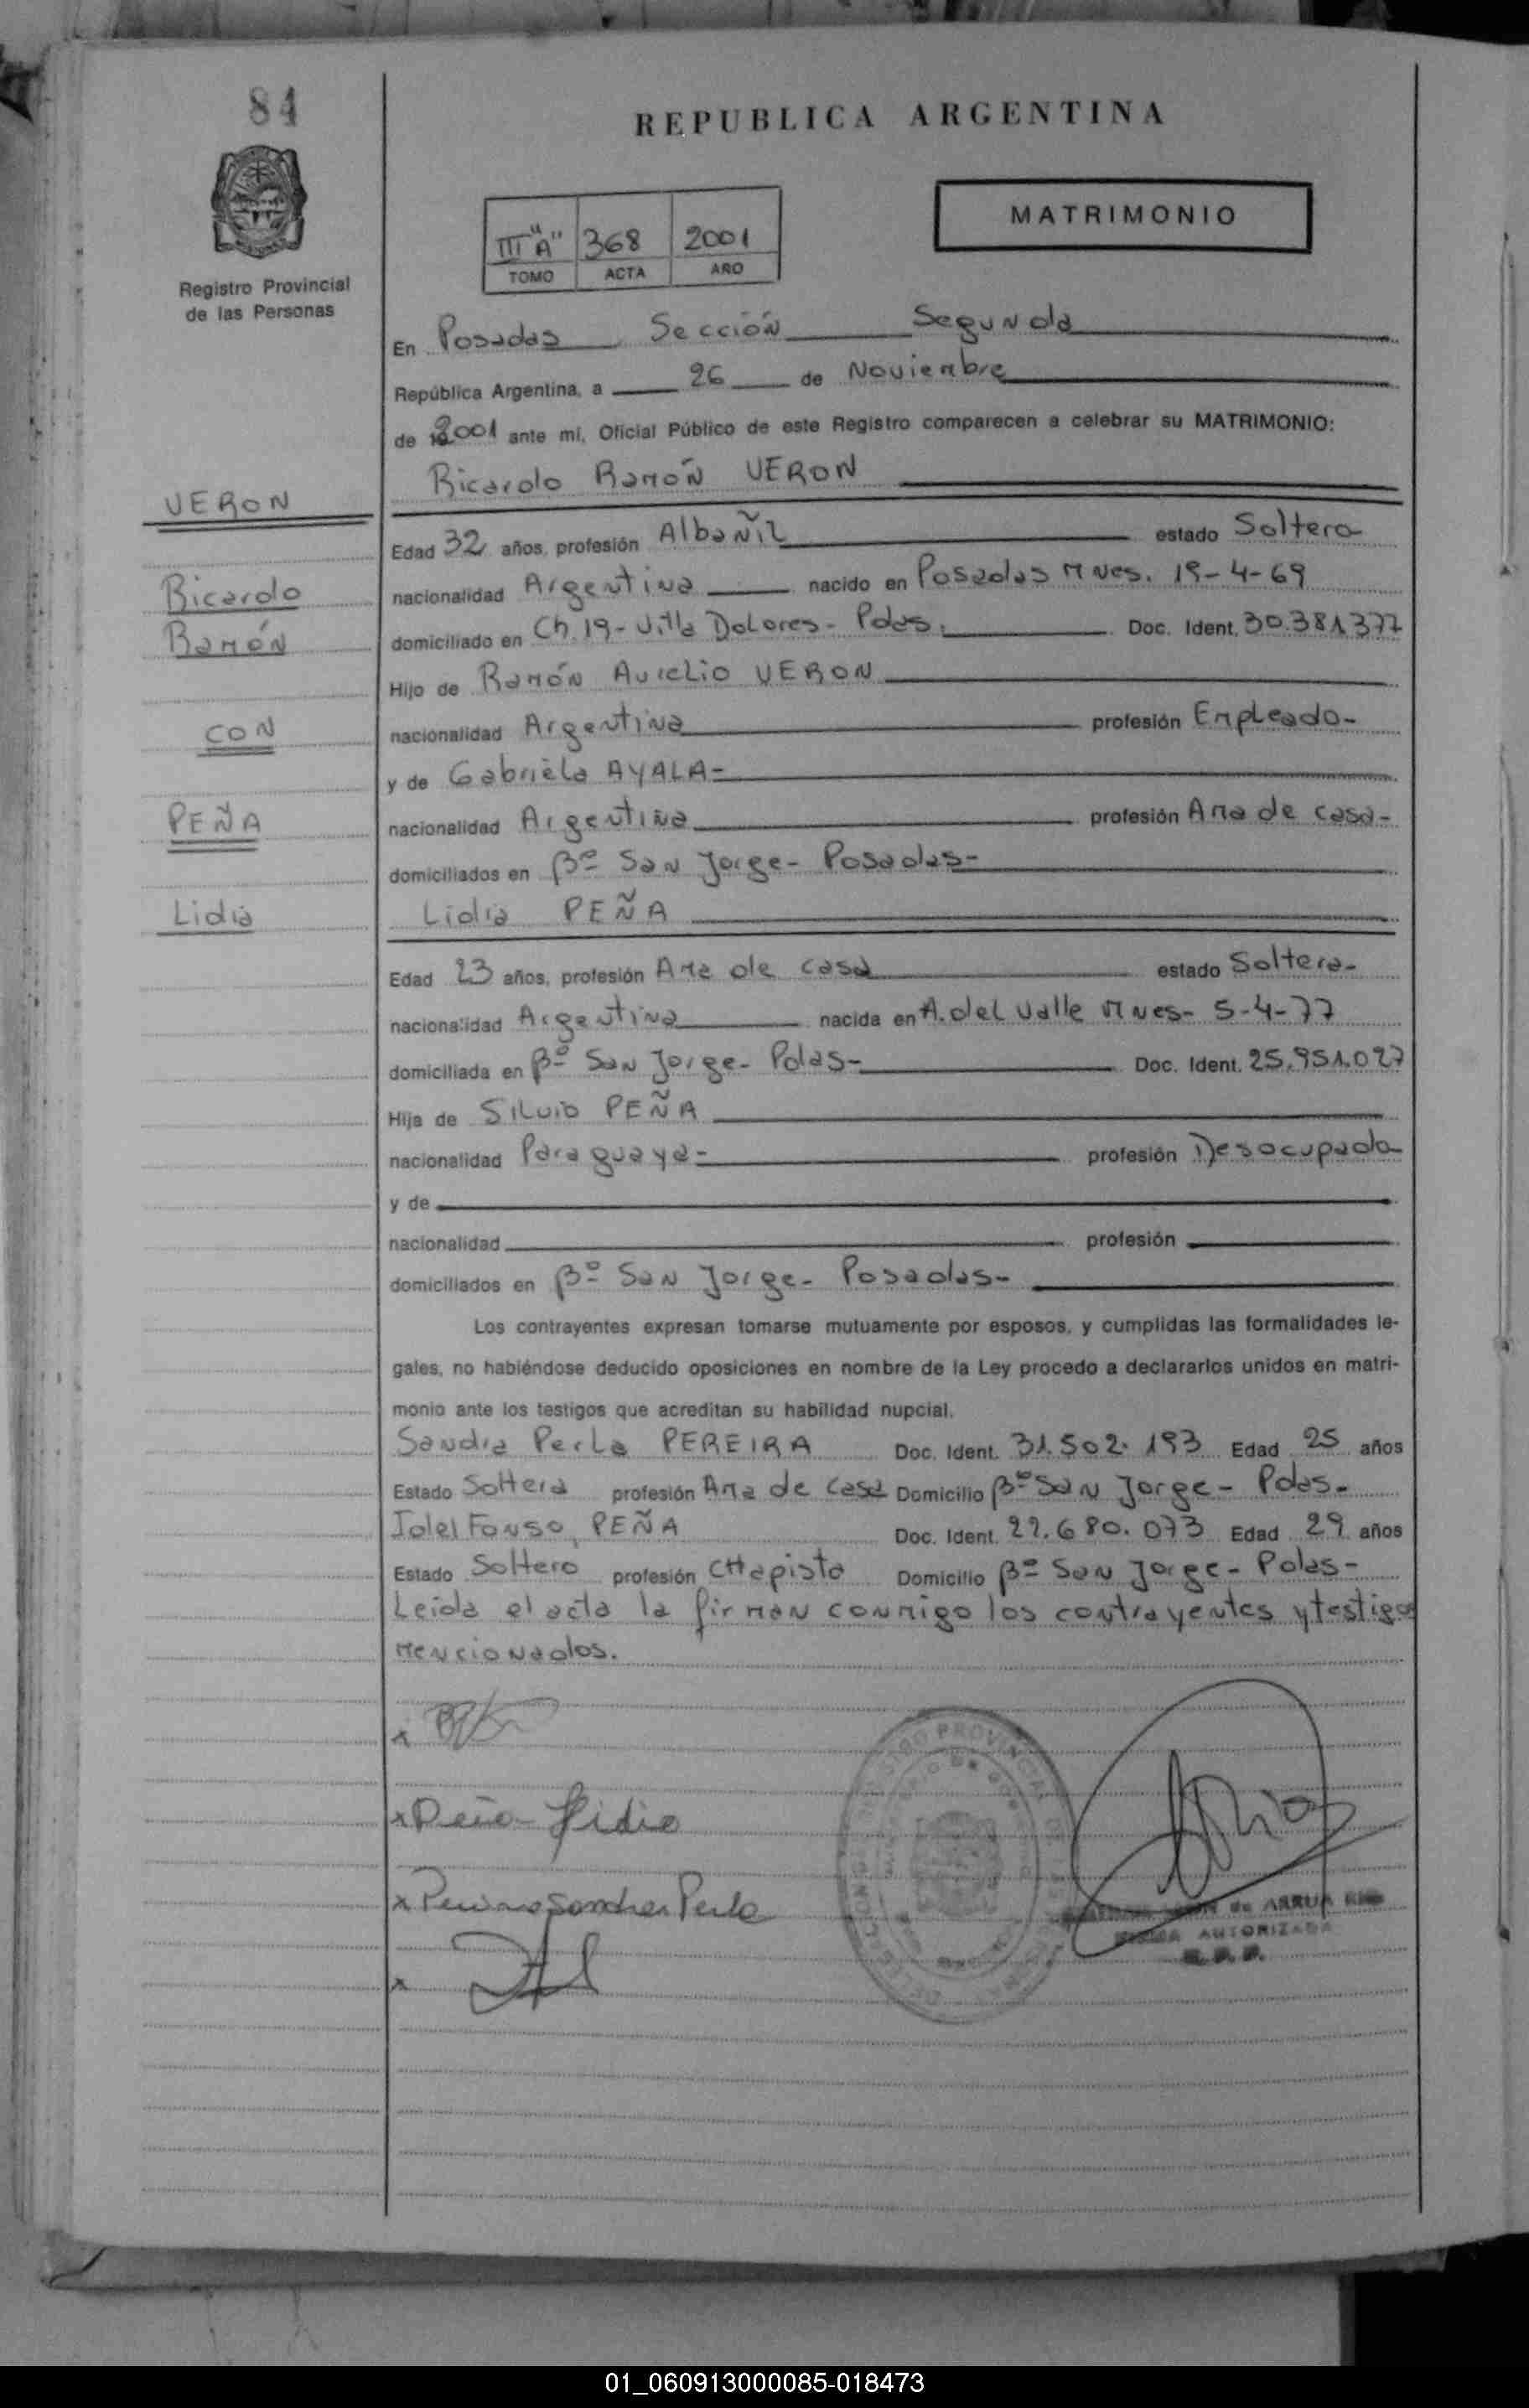 84
REPUBLICA ARGENTINA
Registro Provincial
de las Personas
III "A" 368 2001
TOMO ACTA AÑO
MATRIMONIO
En Posadas Sección Segunda
República Argentina, a 26 de Noviembre
de 2001 ante mí, Oficial Público de este Registro comparecen a celebrar su MATRIMONIO:
Ricardo Ramón VERON
VERON
Edad 32 años, profesión Albañil estado Soltero
Ricardo
nacionalidad Argentina nacido en Posadas Mnes. 19-4-69
Ramón
domiciliado en Ch. 19- Villa Dolores- Pdas. Doc. Ident. 30.381.377
Hijo de Ramón Aurelio VERON
CON
nacionalidad Argentina profesión Empleado-
y de Gabriela AYALA-
PEÑA
nacionalidad Argentina profesión Ama de casa-
domiciliados en Bº San Jorge- Posadas-
Lidia
Lidia PEÑA
Edad 23 años, profesión Ama de casa estado Soltera-
nacionalidad Argentina nacida en A. del Valle Mnes- 5-4-77
domiciliada en Bº San Jorge- Pdas- Doc. Ident. 25.951.027
Hija de Silvio PEÑA
nacionalidad Paraguaya- profesión Desocupada
y de
nacionalidad profesión
domiciliados en Bº San Jorge- Posadas-
Los contrayentes expresan tomarse mutuamente por esposos, y cumplidas las formalidades le-
gales, no habiéndose deducido oposiciones en nombre de la Ley procedo a declararlos unidos en matri-
monio ante los testigos que acreditan su habilidad nupcial.
Sandra Perla PEREIRA Doc. Ident. 31.502.193 Edad 25 años
Estado Soltera profesión Ama de casa Domicilio Bº San Jorge- Pdas-
Idelfonso PEÑA Doc. Ident. 22.680.073 Edad 29 años
Estado Soltero profesión CHapista Domicilio Bº San Jorge- Pdas-
Leida el acta la firman conmigo los contrayentes y testigos
mencionados.
x
x Peña Lidia
x Pereira Sandra Perla
x
de ARRUA
FIRMA AUTORIZADA
R. P. P.
01_060913000085-018473